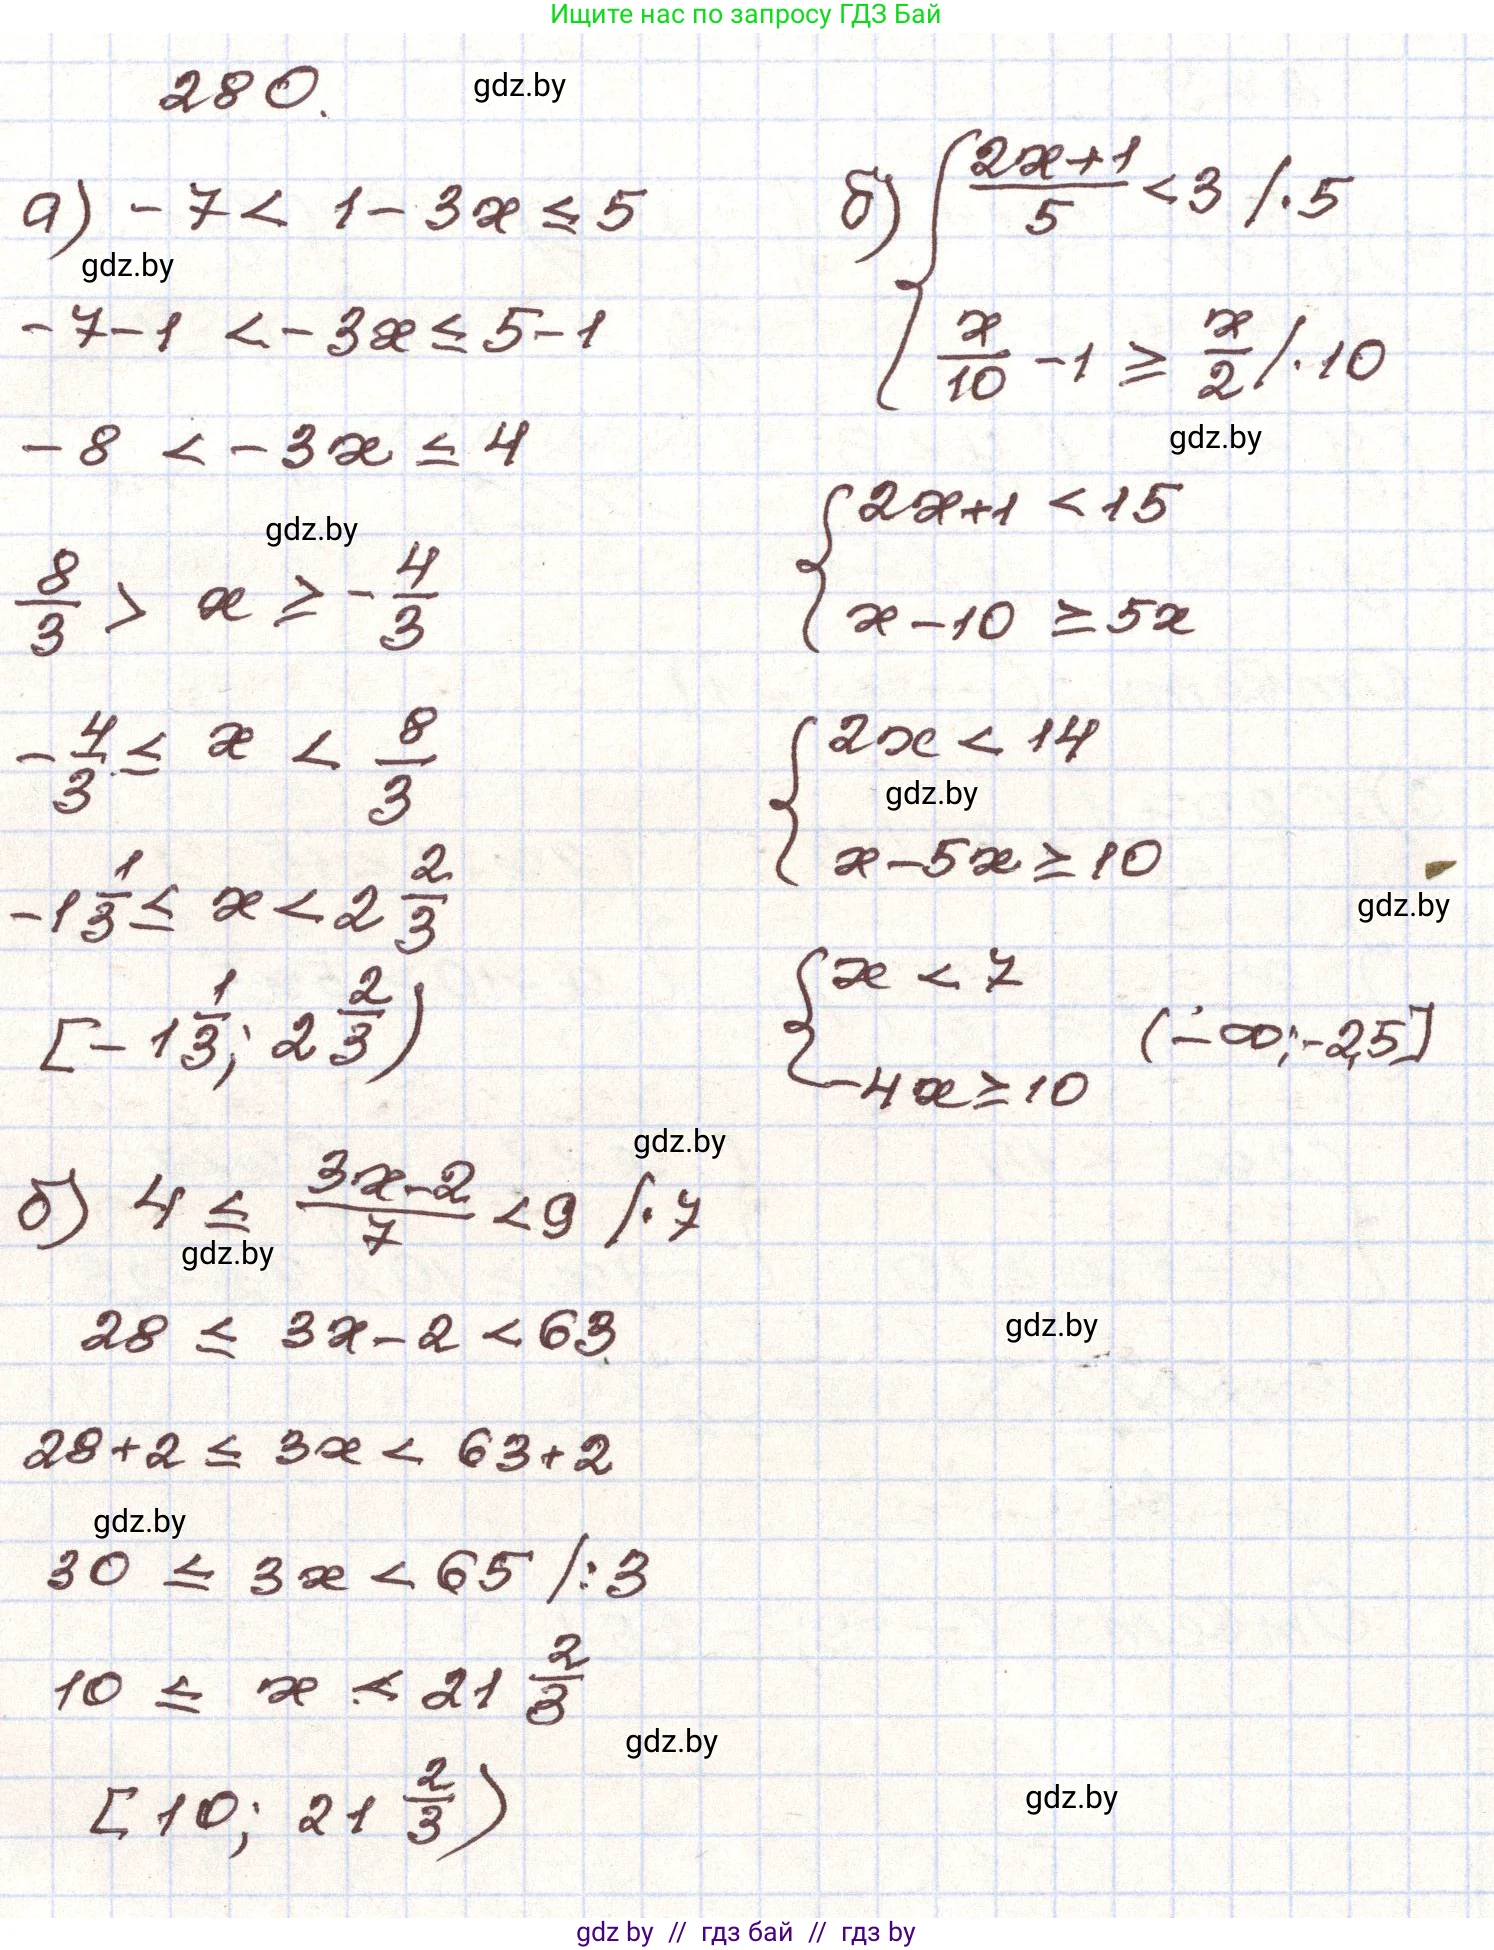 Ищите нас по запросу ГДЗ Бай
280.
gdz.by
а) -7 < 1 - 3x ≤ 5
gdz.by
-7-1 < -3x ≤ 5-1
-8 < -3x ≤ 4
gdz.by
8/3 > x ≥ -4/3
-4/3 ≤ x < 8/3
-1 1/3 ≤ x < 2 2/3
[-1 1/3; 2 2/3)
gdz.by
б) 4 ≤ (3x-2)/7 < 9 /·7
gdz.by
28 ≤ 3x-2 < 63
28+2 ≤ 3x < 63+2
gdz.by
30 ≤ 3x < 65 /:3
10 ≤ x < 21 2/3
gdz.by
[10; 21 2/3)
б) { (2x+1)/5 < 3 /·5
x/10 - 1 ≥ x/2 /·10
gdz.by
{ 2x+1 < 15
x-10 ≥ 5x
{ 2x < 14
gdz.by
x-5x ≥ 10
gdz.by
{ x < 7
(-∞; -2,5]
-4x ≥ 10
gdz.by
gdz.by
gdz by // гдз бай // гдз by